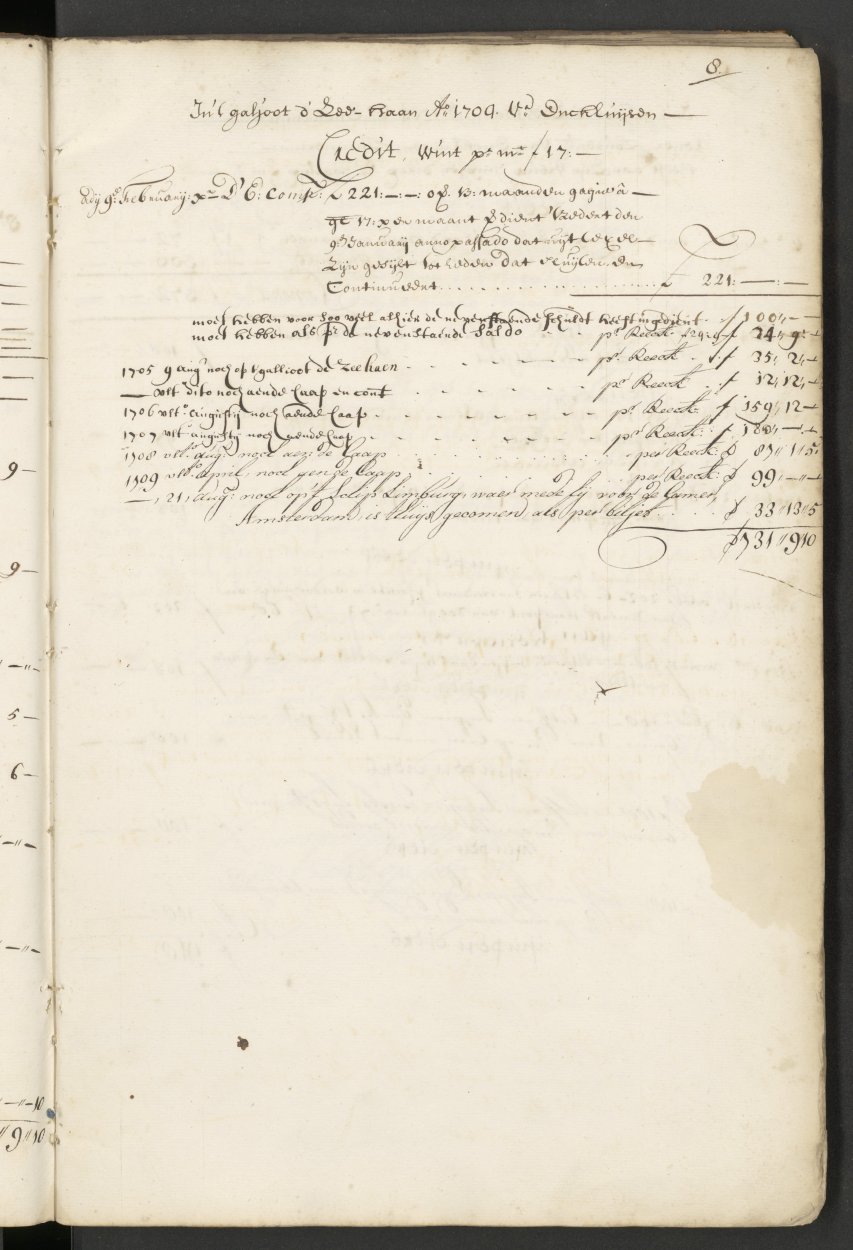 8.
In't galjoot d' Zee-haan Ao 1704. Vr Enckhuijsen
Credit, Wint pr mt f 17:—
Ady 9e Februarij: D' E: Comp: £ 221:—:—: op. 13: maanden gagie â
17: per maant
9e Januarij anno passado dat uijt texel
Zijn geseijlt tot heden dat
Continueert . . . . . . . . . £ 221:—:—
moet hebben voor soo veel alhier de nevenstaende schuldt heeft ingedient f 100,,—
moet hebben als pr de nevenstaende Saldo . . pr Reeck f 24,, 9:—
1705 9 augo noch op 't gallioot de Zeehaen . . . pr Reeck f 35,, 2,,—
— ulto dito noch aende Caap en cont . . . pr Reeck f 12,, 12,,—
1706 ulto augustij noch aende Caap . . . pr Reeck: f 159,, 12—
1707 ulto augustij noch aende Caap . . . pr Reeck: f 180,,—,,—
1708 ulto aug: noch aen de Caap . . . per Reeck: f 87,, 1,, 5:
1709 ulto april, noch aen de Caap . . . per Reeck: f 99,,—,,—
—, 21, aug: noch op't schip Limburg, waer mede hij voor de Camer
Amsterdam, is thuijs gecomen, als per biljet . . f 33,, 13,, 5
f 731,, 9,, 10
9—
9—
—,,—
5—
6—
—,,—
—,,—
—,,—10
9,,10